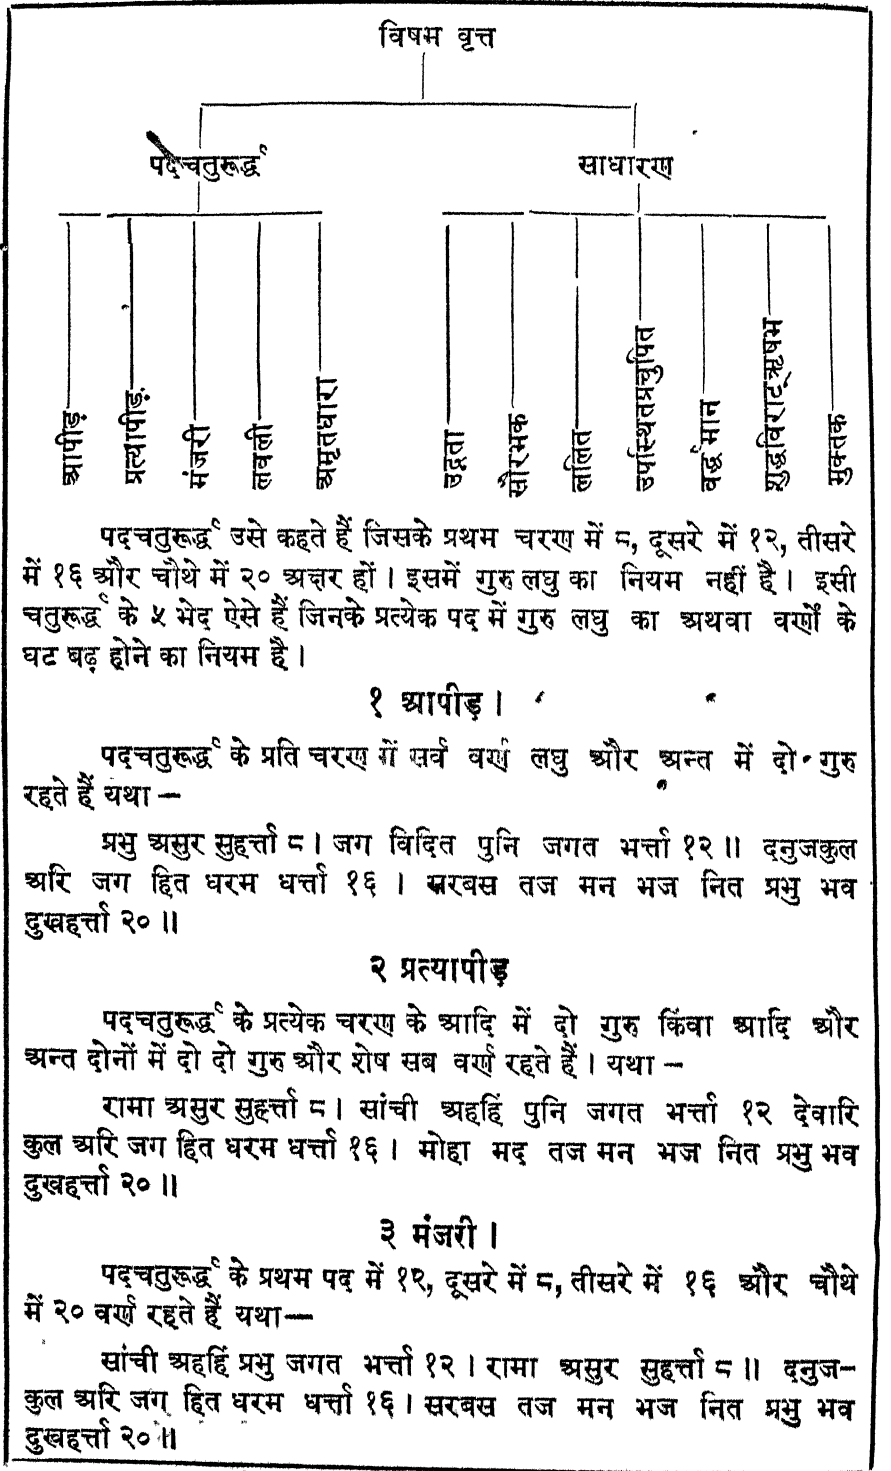 विषम वृत्त
पदचतुरूर्द्ध साधारण
आपीड़ प्रत्यापीड़ मंजरी लवली अमृतधारा उद्गता सौरभक ललित उपस्थितप्रचुपित वर्द्धमान शुद्धविराटऋषभ मुक्तक
पदचतुरूर्द्ध उसे कहते हैं जिसके प्रथम चरण में ८, दूसरे में १२, तीसरे
में १६ और चौथे में २० अक्षर हों । इसमें गुरु लघु का नियम नहीं है । इसी
चतुरूर्द्ध के ५ भेद ऐसे हैं जिनके प्रत्येक पद में गुरु लघु का अथवा वर्णों के
घट बढ़ होने का नियम है ।
१ आपीड़ ।
पदचतुरूर्द्ध के प्रति चरण में सर्व वर्ण लघु और अन्त में दो गुरु
रहते हैं यथा —
प्रभु असुर सुहर्त्ता ८ । जग विदित पुनि जगत भर्त्ता १२ ॥ दनुजकुल
अरि जग हित धरम धर्त्ता १६ । सरबस तज मन भज नित प्रभु भव
दुखहर्त्ता २० ॥
२ प्रत्यापीड़
पदचतुरूर्द्ध के प्रत्येक चरण के आदि में दो गुरु किंवा आदि और
अन्त दोनों में दो दो गुरु और शेष सब वर्ण रहते हैं । यथा —
रामा असुर सुहर्त्ता ८ । सांची अहहिं पुनि जगत भर्त्ता १२ देवारि
कुल अरि जग हित धरम धर्त्ता १६ । मोहा मद तज मन भज नित प्रभु भव
दुखहर्त्ता २० ॥
३ मंजरी ।
पदचतुरूर्द्ध के प्रथम पद में १२, दूसरे में ८, तीसरे में १६ और चौथे
में २० वर्ण रहते हैं यथा—
सांची अहहिं प्रभु जगत भर्त्ता १२ । रामा असुर सुहर्त्ता ८ ॥ दनुज-
कुल अरि जग हित धरम धर्त्ता १६ । सरबस तज मन भज नित प्रभु भव
दुखहर्त्ता २० ॥